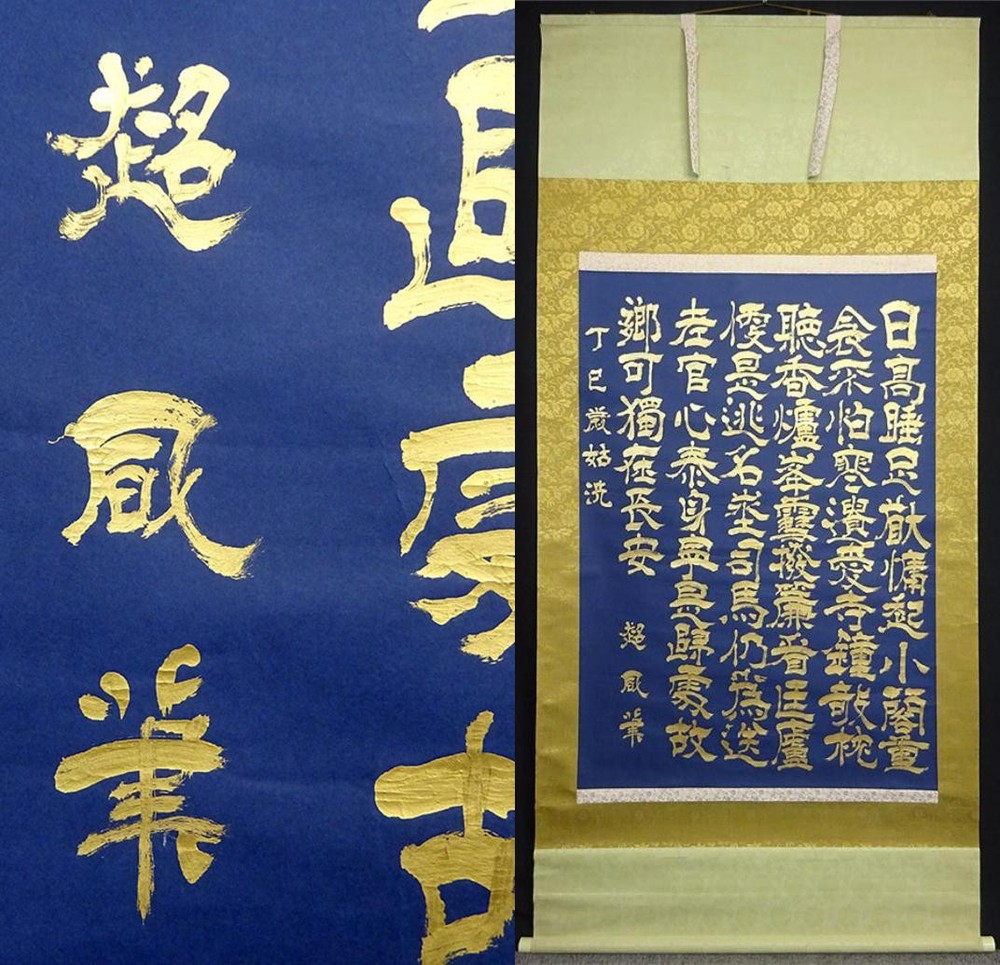 超風筆
日高睡足猷慵起小閣重
衾不怕寒遺愛寺鐘敧枕
聽香爐峯雪撥簾看匡廬
便是逃名埊司馬仍為送
老官心泰身寧是歸處故
鄉可獨在長安
丁巳歳姑洗
超風筆